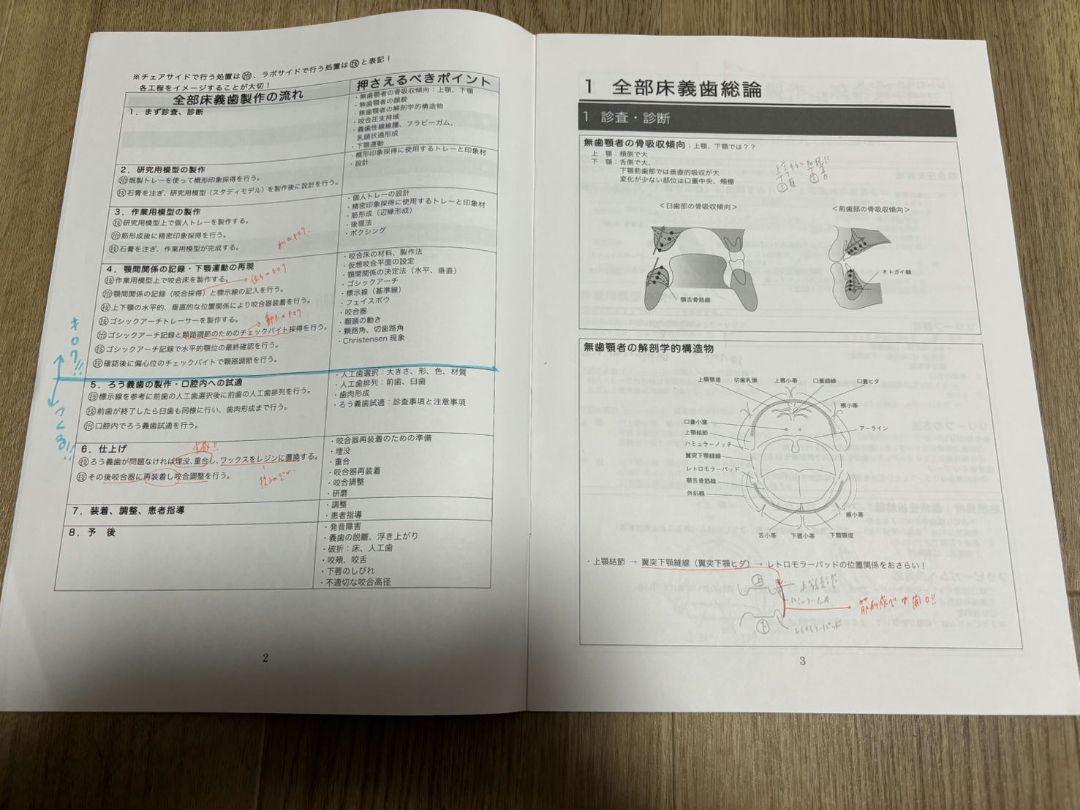 ※チェアサイドで行う処置は㋠、ラボサイドで行う処置は㋶と表記!
各工程をイメージすることが大切!
全部床義歯製作の流れ
押さえるべきポイント
1.まず診査、診断
・無歯顎者の骨吸収傾向:上顎、下顎
・無歯顎者の顔貌
・無歯顎者の解剖学的構造物
・咬合圧支持域
・義歯性線維腫、フラビーガム、
乳頭状過形成
・下顎運動
2.研究用模型の製作
㋠既製トレーを使って概形印象採得を行う。
㋶石膏を注ぎ、研究用模型(スタディモデル)を製作後に設計を行う。
・概形印象採得に使用するトレーと印象材
・設計
3.作業用模型の製作
㋶研究用模型上で個人トレーを製作する。
㋠筋形成後に精密印象採得を行う。
㋶石膏を注ぎ、作業用模型が完成する。
・個人トレーの設計
・精密印象採得に使用するトレーと印象材
・筋形成(辺縁形成)
・後堤法
・ボクシング
4.顎間関係の記録・下顎運動の再現
㋶作業用模型上で咬合床を製作する。
㋠顎間関係の記録(咬合採得)と標示線の記入を行う。
㋶上下顎の水平的、垂直的な位置関係により咬合器装着を行う。
㋶ゴシックアーチトレーサーを製作する。
㋠ゴシックアーチ記録と顆路調節のためのチェックバイト採得を行う。
㋶ゴシックアーチ記録で水平的顎位の最終確認を行う。
㋶確認後に偏心位のチェックバイトで顆路調節を行う。
・咬合床の材料、製作法
・仮想咬合平面の設定
・顎間関係の決定法(水平、垂直)
・ゴシックアーチ
・標示線(基準線)
・フェイスボウ
・咬合器
・顆頭の動き
・顆路角、切歯路角
・Christensen 現象
5.ろう義歯の製作・口腔内への試適
㋶標示線を参考に前歯の人工歯選択後に前歯の人工歯排列を行う。
㋶前歯が終了したら臼歯も同様に行い、歯肉形成まで行う。
㋠口腔内でろう義歯試適を行う。
・人工歯選択:大きさ、形、色、材質
・人工歯排列:前歯、臼歯
・歯肉形成
・ろう義歯試適:診査事項と注意事項
つくる!!
6.仕上げ
㋶ろう義歯が問題なければ埋没、重合し、ワックスをレジンに置換する。
㋶その後咬合器に再装着し咬合調整を行う。
・咬合器再装着のための準備
・埋没
・重合
・咬合器再装着
・咬合調整
・研磨
7.装着、調整、患者指導
・調整
・患者指導
8.予 後
・発音障害
・義歯の脱離、浮き上がり
・破折:床、人工歯
・咬頰、咬舌
・下唇のしびれ
・不適切な咬合高径
2
1 全部床義歯総論
1 診査・診断
無歯顎者の骨吸収傾向:上顎、下顎では??
上 顎:頰側で大
下 顎:舌側で大、
下顎前歯部では垂直的吸収が大
変化が少ない部位は口蓋中央、頰棚
<臼歯部の骨吸収傾向>
<前歯部の骨吸収傾向>
オトガイ棘
顎舌骨筋線
無歯顎者の解剖学的構造物
上顎顎堤
切歯乳頭
上唇小帯
口蓋縫線
口蓋ヒダ
頰小帯
口蓋小窩
アーライン
上顎結節
ハミュラーノッチ
翼突下顎縫線
レトロモラーパッド
顎舌骨筋線
外斜線
頰小帯
舌小帯
下唇小帯
下顎顎堤
・上顎結節 → 翼突下顎縫線(翼突下顎ヒダ) → レトロモラーパッドの位置関係をおさらい!
上
下
3